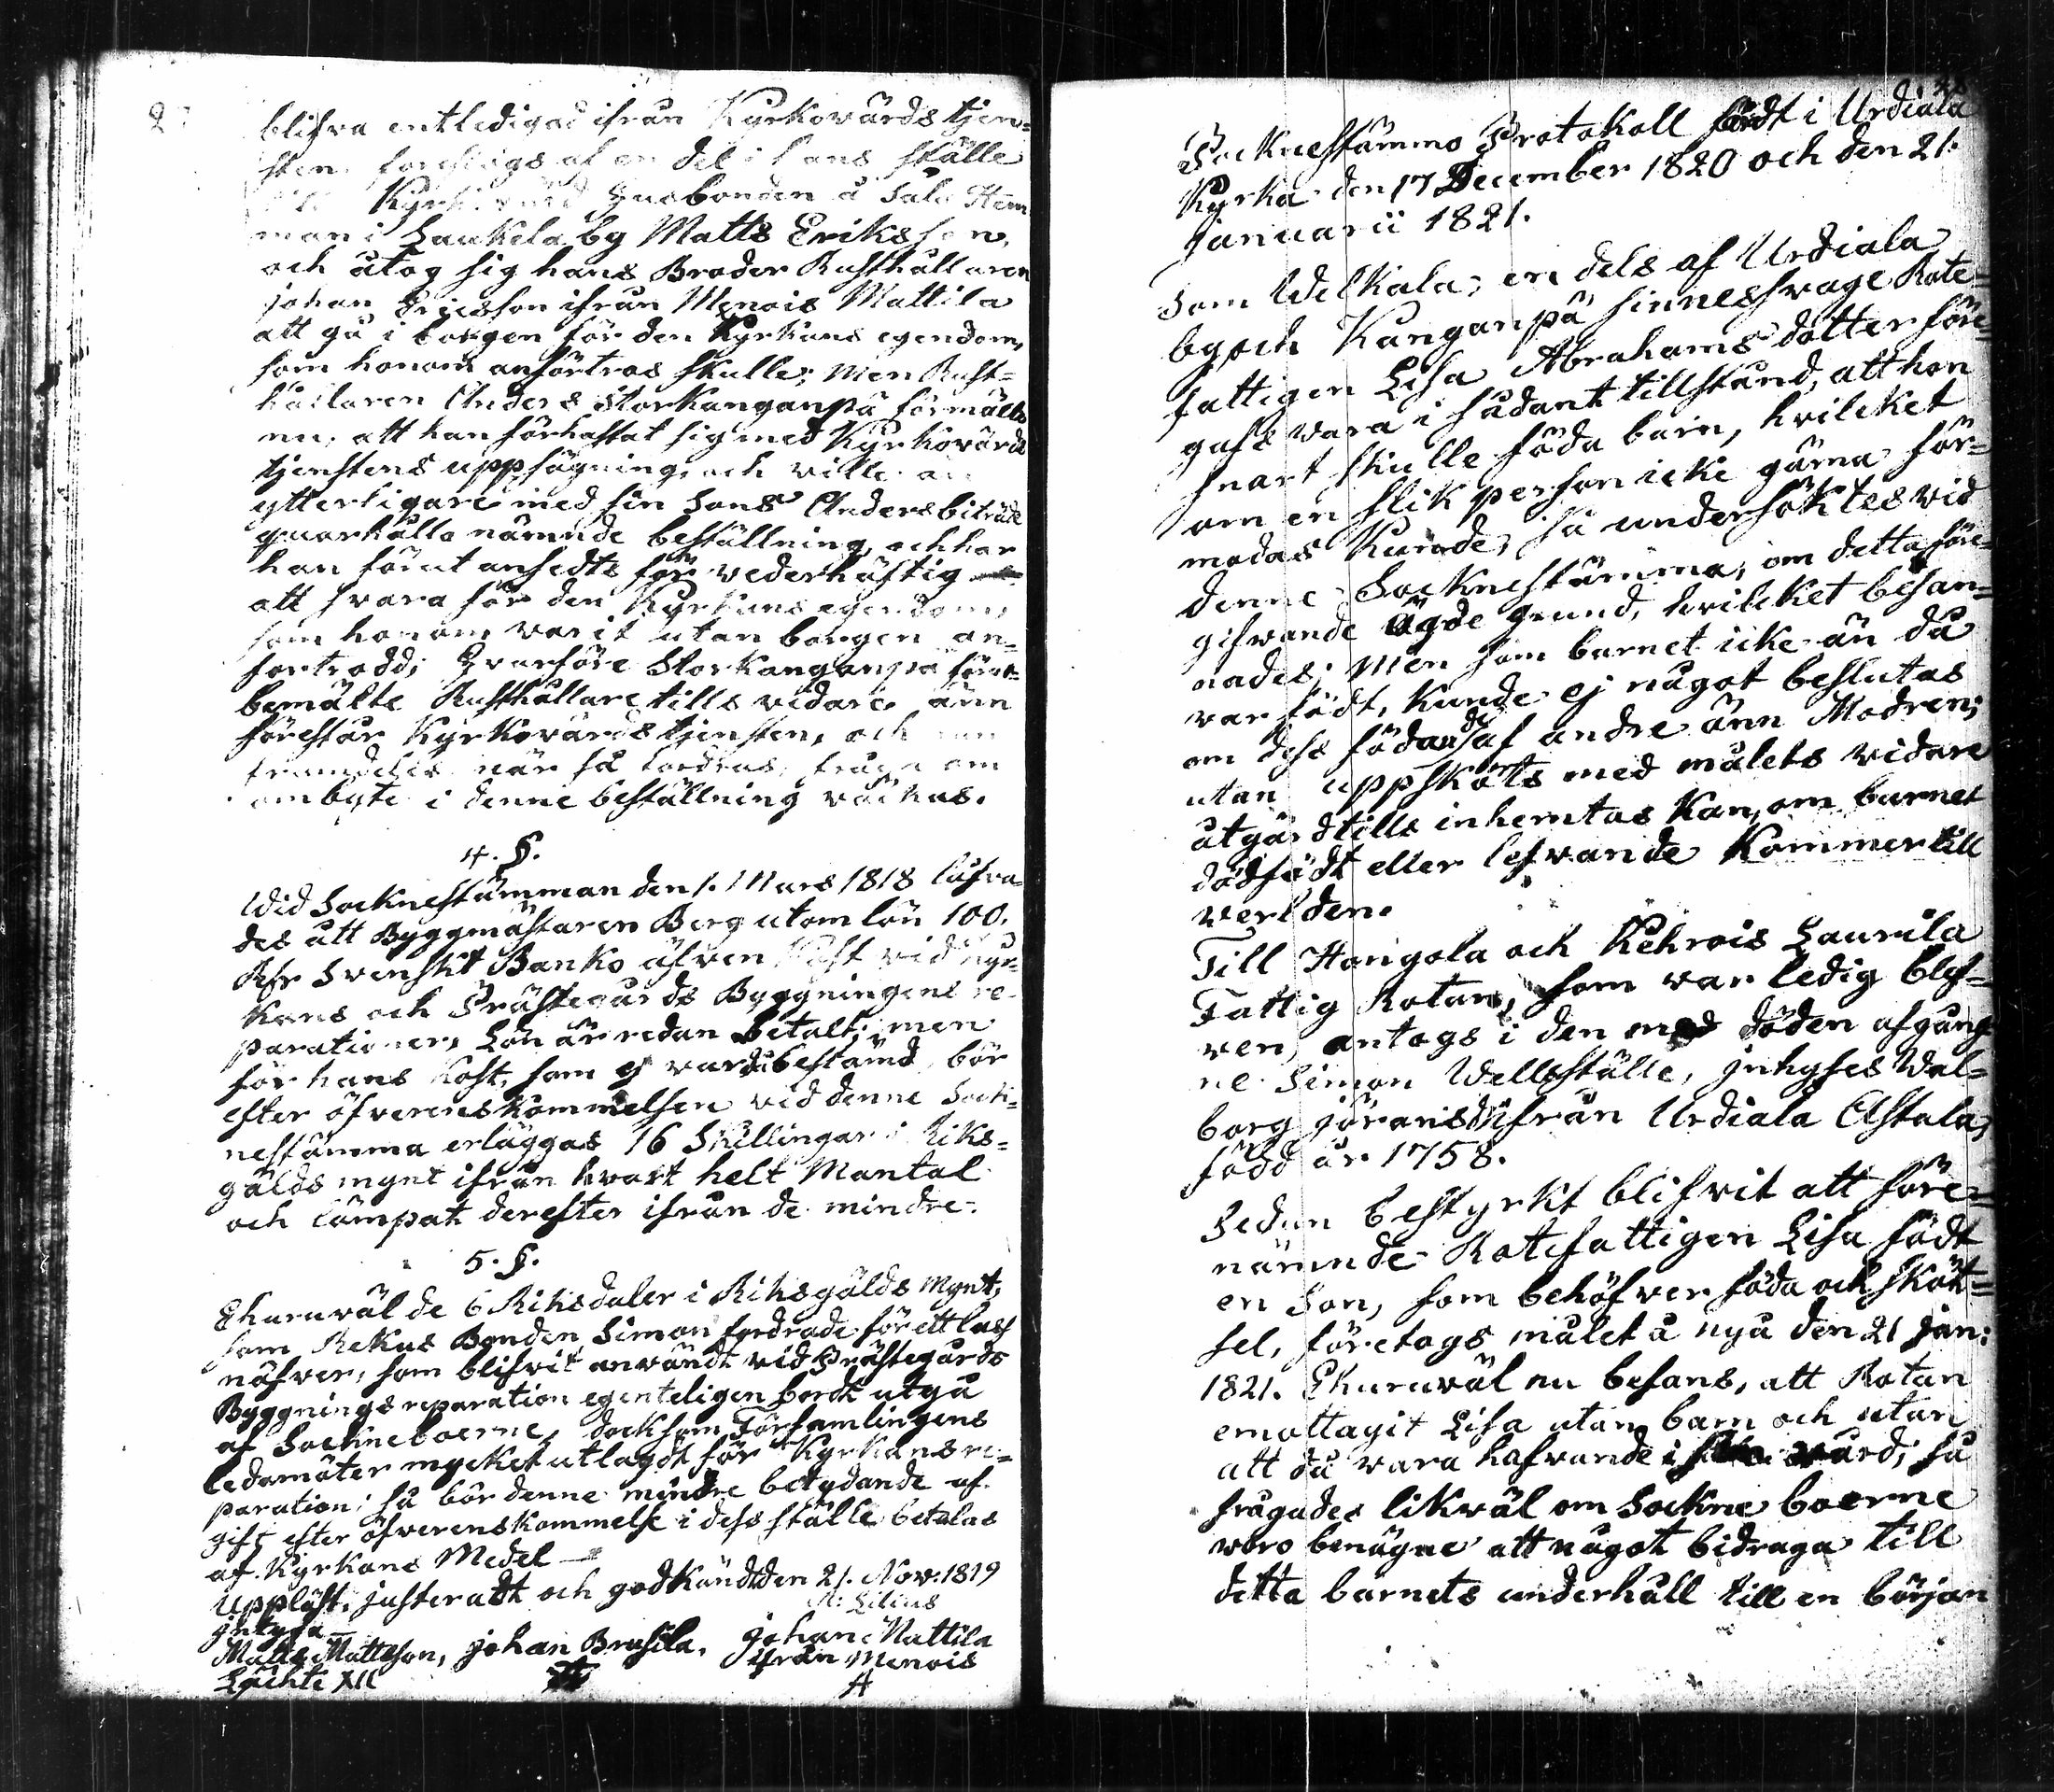 27
blifva entledigad ifrån Kyrkovärds tjen=
sten föreslogs af en del i hans ställe
till Kyrkovärd Husbonden å Sala Hem
man i Laukela by Matts Eriksson,
och åtog sig hans Broder Rusthållaren
Johan Ericsson ifrån Menois Mattila
att gå i borgen för den Kyrkans egendom,
som honom anförtros skulle; men Rust=
hållaren Anders Storkanganpä förmälte
nu, att han förhastat sig med Kyrkovärds
tjenstens uppsägning, och ville
ytterligare med sin Sons Anders biträde
quarhålla nämnde beställning, och har
han förut ansedts för vederhäftig
att svara för den Kyrkans egendom,
som honom varit utan borgen an=
förtrodd; Hvarföre Storkanganpä först=
bemälte Rusthållare tills vidare änn
förestår Kyrkovärds tjensten, och
framdeles när så fordras, fråga om
ombyte i denne beställning väckas.
4. §.
Wid Socknestämman den 1. Mars 1818 lofva=
des att Byggmästaren Berg utom lön 100.
Rdr Svenskt Banko äfven Kost vid Kyr=
kans och Prästegårds Byggningens re=
parationer. Lön är redan betalt; men
för hans Kost, som ej var då bestämd, bör
efter öfverenskommelsen vid denne Sock=
nestämma erläggas 16 Skillingar i Riks=
gälds mynt ifrån hvart helt Mantal
och lämpat derefter ifrån de mindre.
5. §.
Ehuruväl de 6 Riksdaler i Riksgälds Mynt,
som Rekus Bonden Simon fordrade för ett lass
näfver, som blifvit användt vid Prästegårds
Byggnings reparation egenteligen bordt utgå
af Sockneboerne, dock som Församlingens
ledamöter mycket utlagdt för Kyrkans re=
paration; så bör denne mindre betydande af=
gift efter öfverenskommelse i dess ställe betalas
af Kyrkans Medel
Uppläst, justeradt och godkändt den 21. Nov. 1819
A: Lilius
Intyga
Matts Mattsson, Johan Brusila, Johan Mattila
Lachte XII ifrån Menois
28
Socknestämmo Protokoll fördt i Urdiala
Kyrka den 17 December 1820 och den 21.
Januarii 1821.
Som Welkala, en dels af Urdiala
by och Kanganpä sinnessvage Rote=
fattigen Lisa Abrahams dotter före=
gafs vara i sådant tillstånd, att hon
snart skulle föda barn, hvilcket
om en slik person icke gärna för=
modas kunde, så undersöktes vid
denne Socknestämma, om detta före=
gifvande ägde grund, hvilcket besan=
nades; men som barnet icke än då
var födt, kunde ej något beslutas
om dess födande af andre änn Modren;
utan uppsköts med målets vidare
åtgärd tills inhemtas kan, om barnet
dödfödt eller lefvande kommer till
verlden.
Till Hongola och Kehrois Laurila
Fattig Rotan, som var ledig blef=
ven, antogs i den med döden afgång
ne Simon Wells ställe, Inhyses Wal=
borg Jöransdr ifrån Urdiala Astala,
född år 1758.
Sedan bestyrkt blifvit att före=
nämnde Rotefattigen Lisa födt
en Son, som behöfver föda och sköt=
sel, företogs målet å nya den 21 Jan:
1821. Ehuruväl nu befans, att Rotan
emottagit Lisa utan barn och utan
att då vara hafvande i vård; så
frågades likväl om Sockneboerne
voro benägne att något bidraga till
detta barnets underhåll till en början